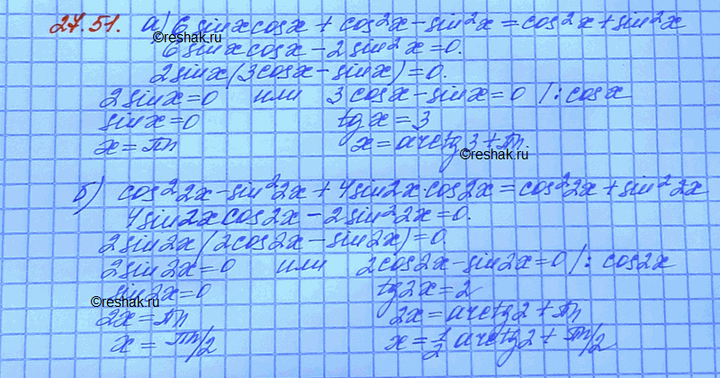 27.51. а) 6 sinx cosx + cos²x - sin²x = cos²x + sin²x
©reshak.ru
6 sinx cosx - 2 sin²x = 0.
2 sinx (3cosx - sinx) = 0.
2 sinx = 0 или 3 cosx - sinx = 0 /: cosx
sinx = 0 tgx = 3
x = πn x = arctg3 + πn.
©reshak.ru
б) cos²2x - sin²2x + 4 sin2x cos2x = cos²2x + sin²2x
4 sin2x cos2x - 2 sin²2x = 0.
2 sin2x (2cos2x - sin2x) = 0.
2 sin2x = 0 или 2cos2x - sin2x = 0 /: cos2x
sin2x = 0 tg2x = 2
©reshak.ru
2x = πn 2x = arctg2 + πn
x = πn/2 x = 1/2 arctg2 + πn/2